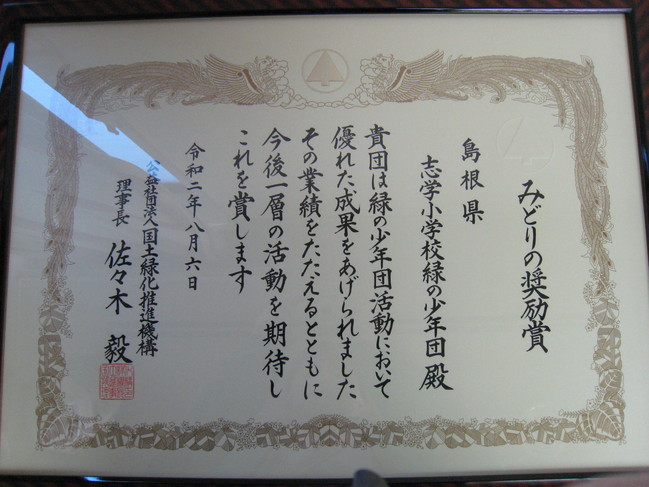 みどりの奨励賞
島根県
志学小学校緑の少年団 殿
貴団は緑の少年団活動において
優れた成果をあげられました
その業績をたたえるとともに
今後一層の活動を期待し
これを賞します
令和二年八月六日
公益社団法人国土緑化推進機構
理事長 佐々木 毅